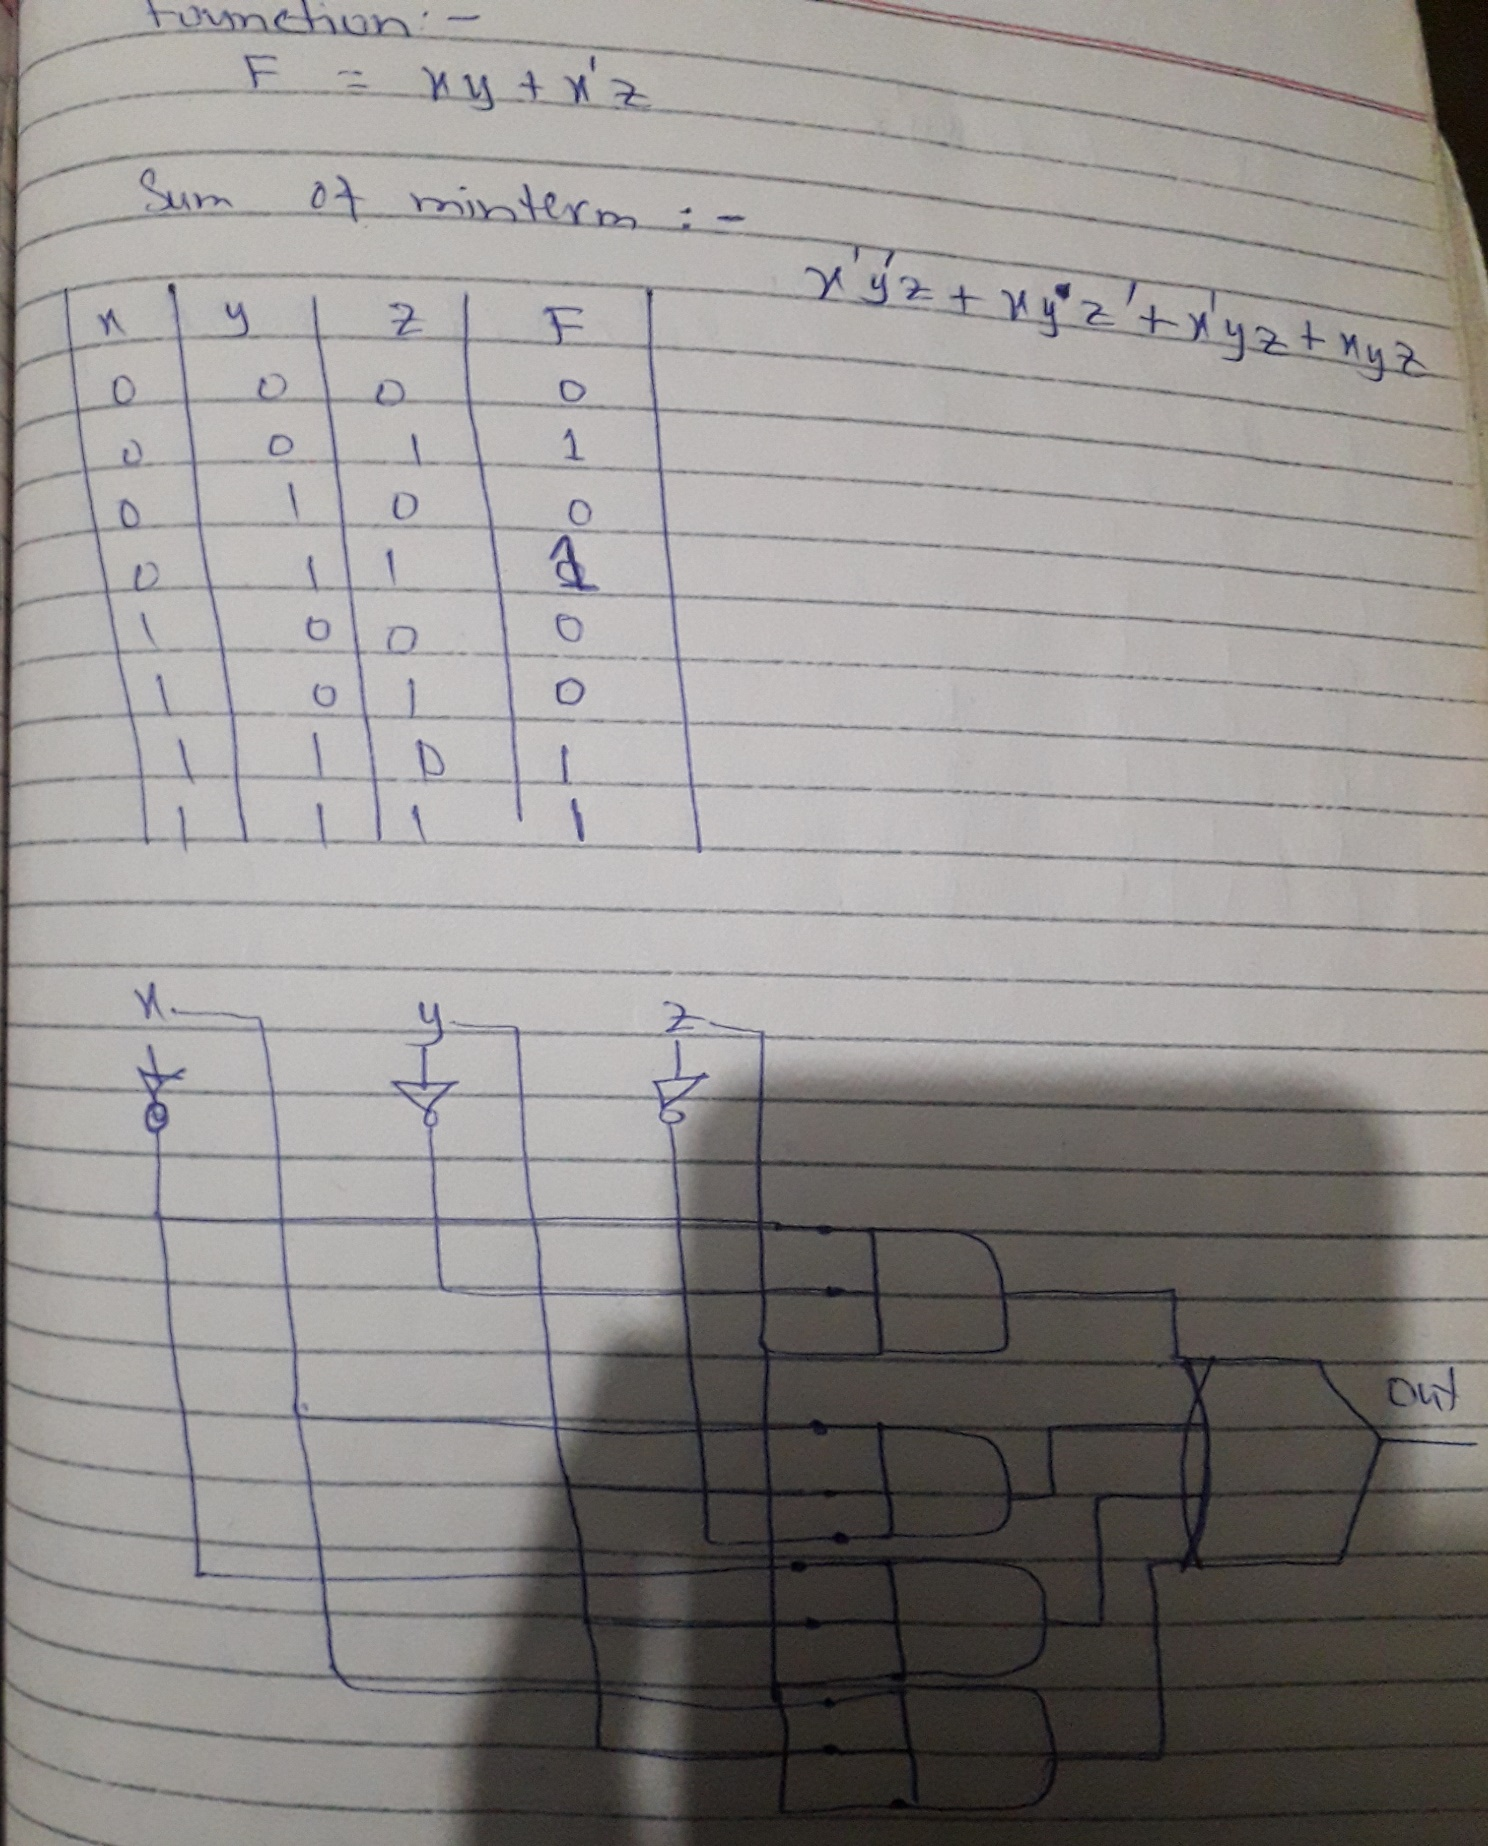 Function:-
F = xy + x'z
Sum of minterm :-
x'y'z + xyz' + x'yz + xyz
x y z F
0 0 0 0
0 0 1 1
0 1 0 0
0 1 1 1
1 0 0 0
1 0 1 0
1 1 0 1
1 1 1 1
x y z
Out